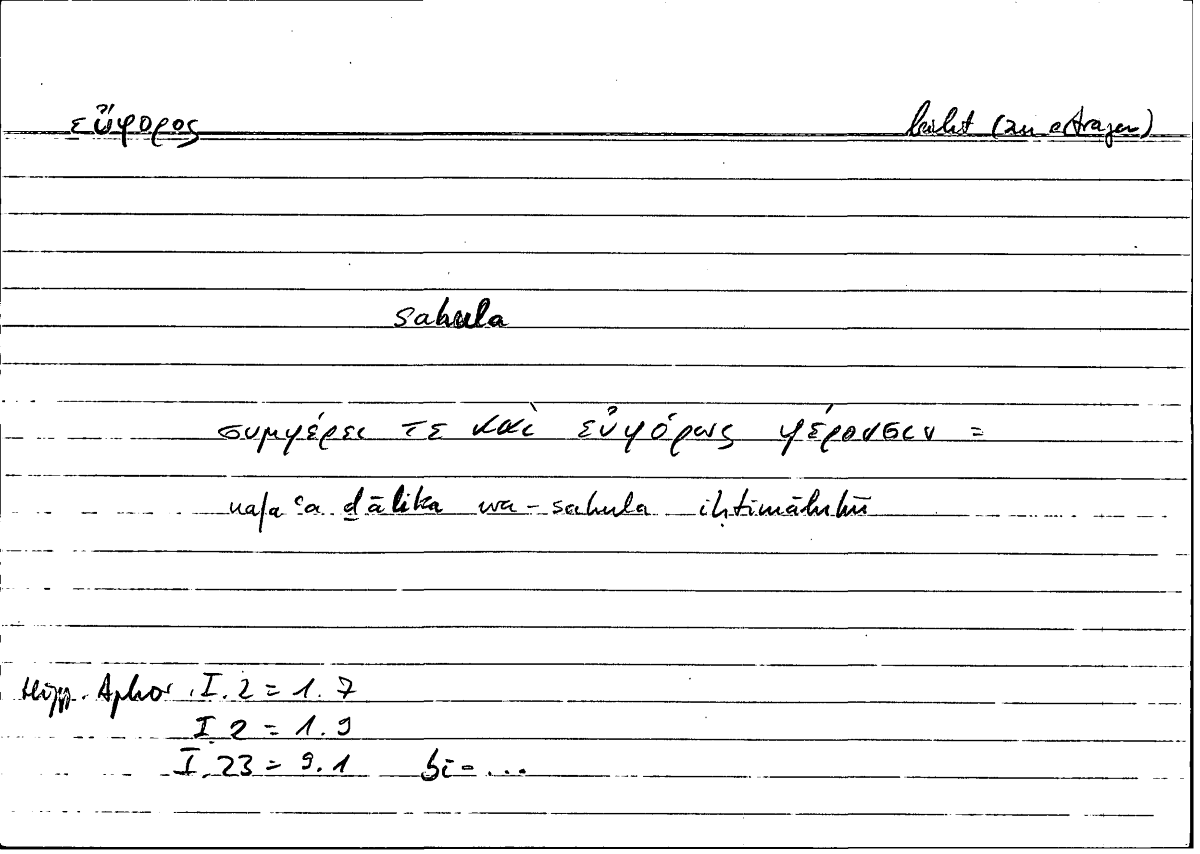 εὔφορος leicht (zu ertragen)
sahula
συμφέρει τε καὶ εὐφόρως φέρουσιν =
nafaʿa ḏālika wa-sahula iḥtimāluhū
Hipp. Aphor. I.2 = 1.7
I.2 = 1.9
I.23 = 9.1 bi-...